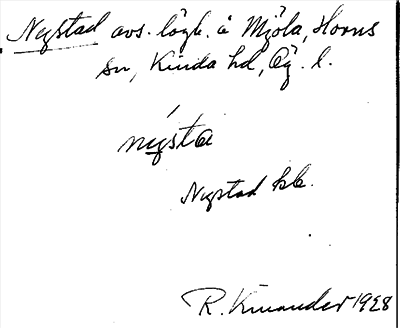 Nystad avs. lägh. å Mjöla, Horns
sn, Kinda hd, Ög. l.
nysta
Nystad kb.
R. Kinander 1928